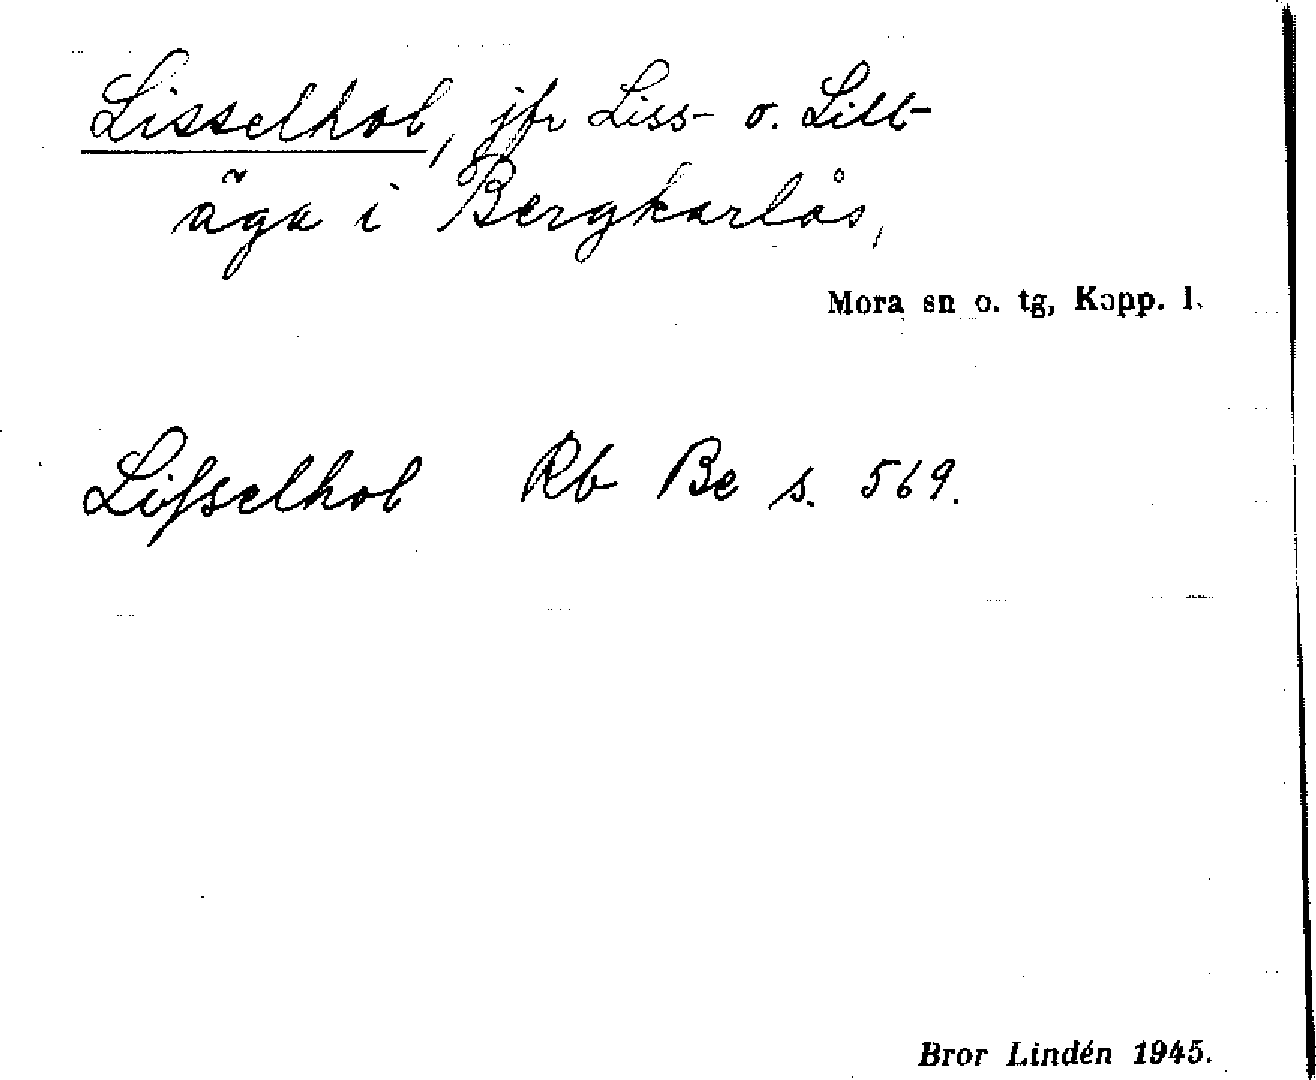 Lisselhol, jfr Liss- o. Lill-
äga i Bergkarlås,
Mora sn o. tg, Kopp. l.
Lifselhol Rb Be s. 569.
Bror Lindén 1945.